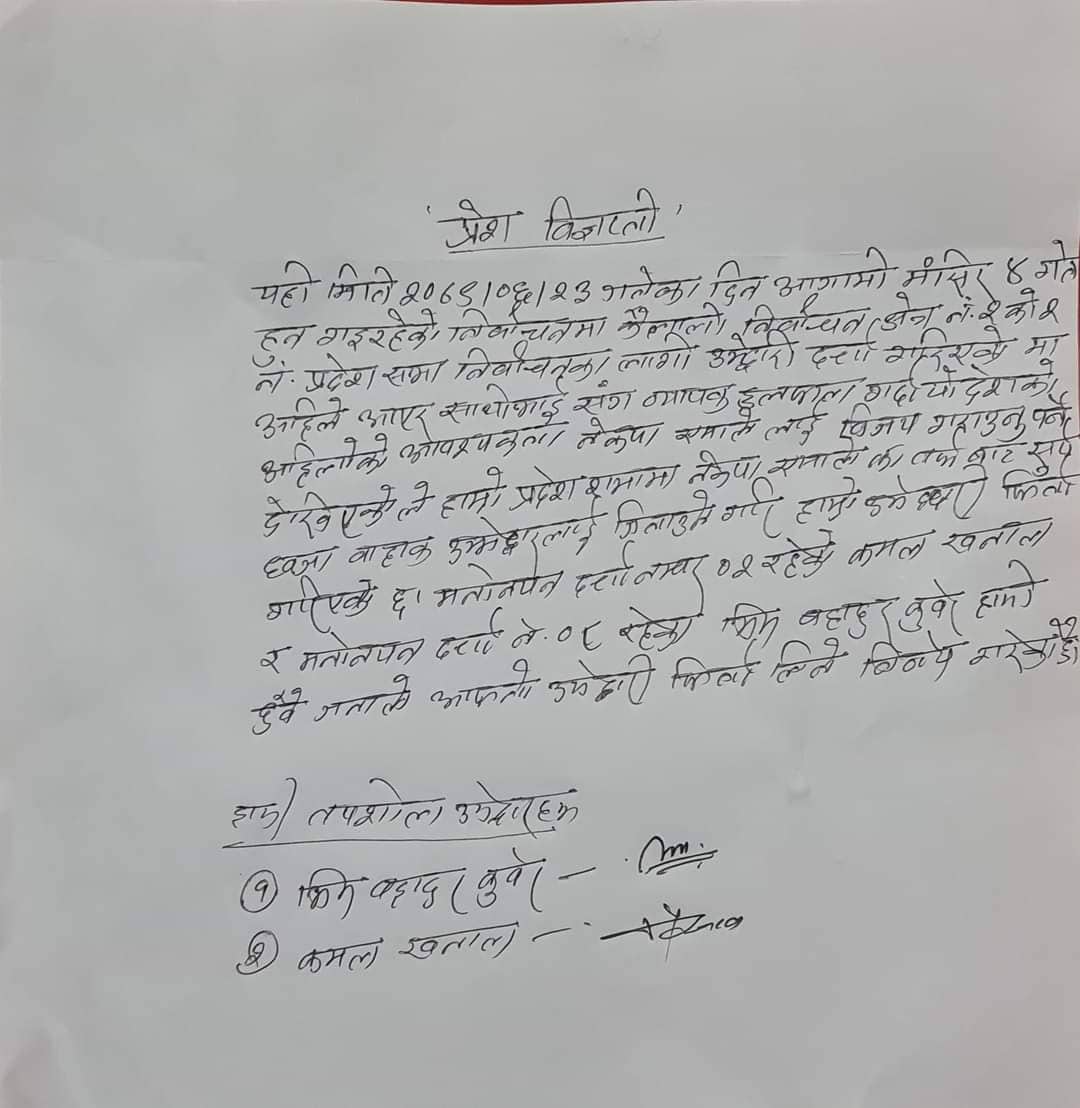 'प्रेश विज्ञप्ती'
यही मिति २०७९।०६।२३ गतेका दिन आगामी मंसिर ४ गते
हुन गइरहेको निर्वाचनमा कैलाली निर्वाचन क्षेत्र नं. २ को २
नं. प्रदेश सभा निर्वाचनका लागी उमेद्वारी दर्ता गरिएको मा
अहिले आएर साथीभाई संग व्यापक छलफल गर्दा यो देशको
अहिलोको आवश्यकता नेकपा एमाले लाई विजय गराउनु पर्ने
देखिएको ले हाम्रो प्रदेश सभामा नेकपा एमाले का तर्फ बाट सुर्य
छाप वाहाक उम्मेद्वारलाई जिताउने गरि हाम्रो उमेद्वारी फिर्ता
गरिएको छ। मनोनयन दर्ता नम्वर ०२ रहेको कमल खनाल
र मनोनयन दर्ता नं. ०८ रहेका भिम बहादुर कुवेर हामी
दुवै जनाले आफ्नो उमेद्वारी फिर्ता लिने निर्णय गरेका छौ
हामी तपशील उमेद्वारहरू
१ भिम बहादुर कुवेर –
२ कमल खनाल –